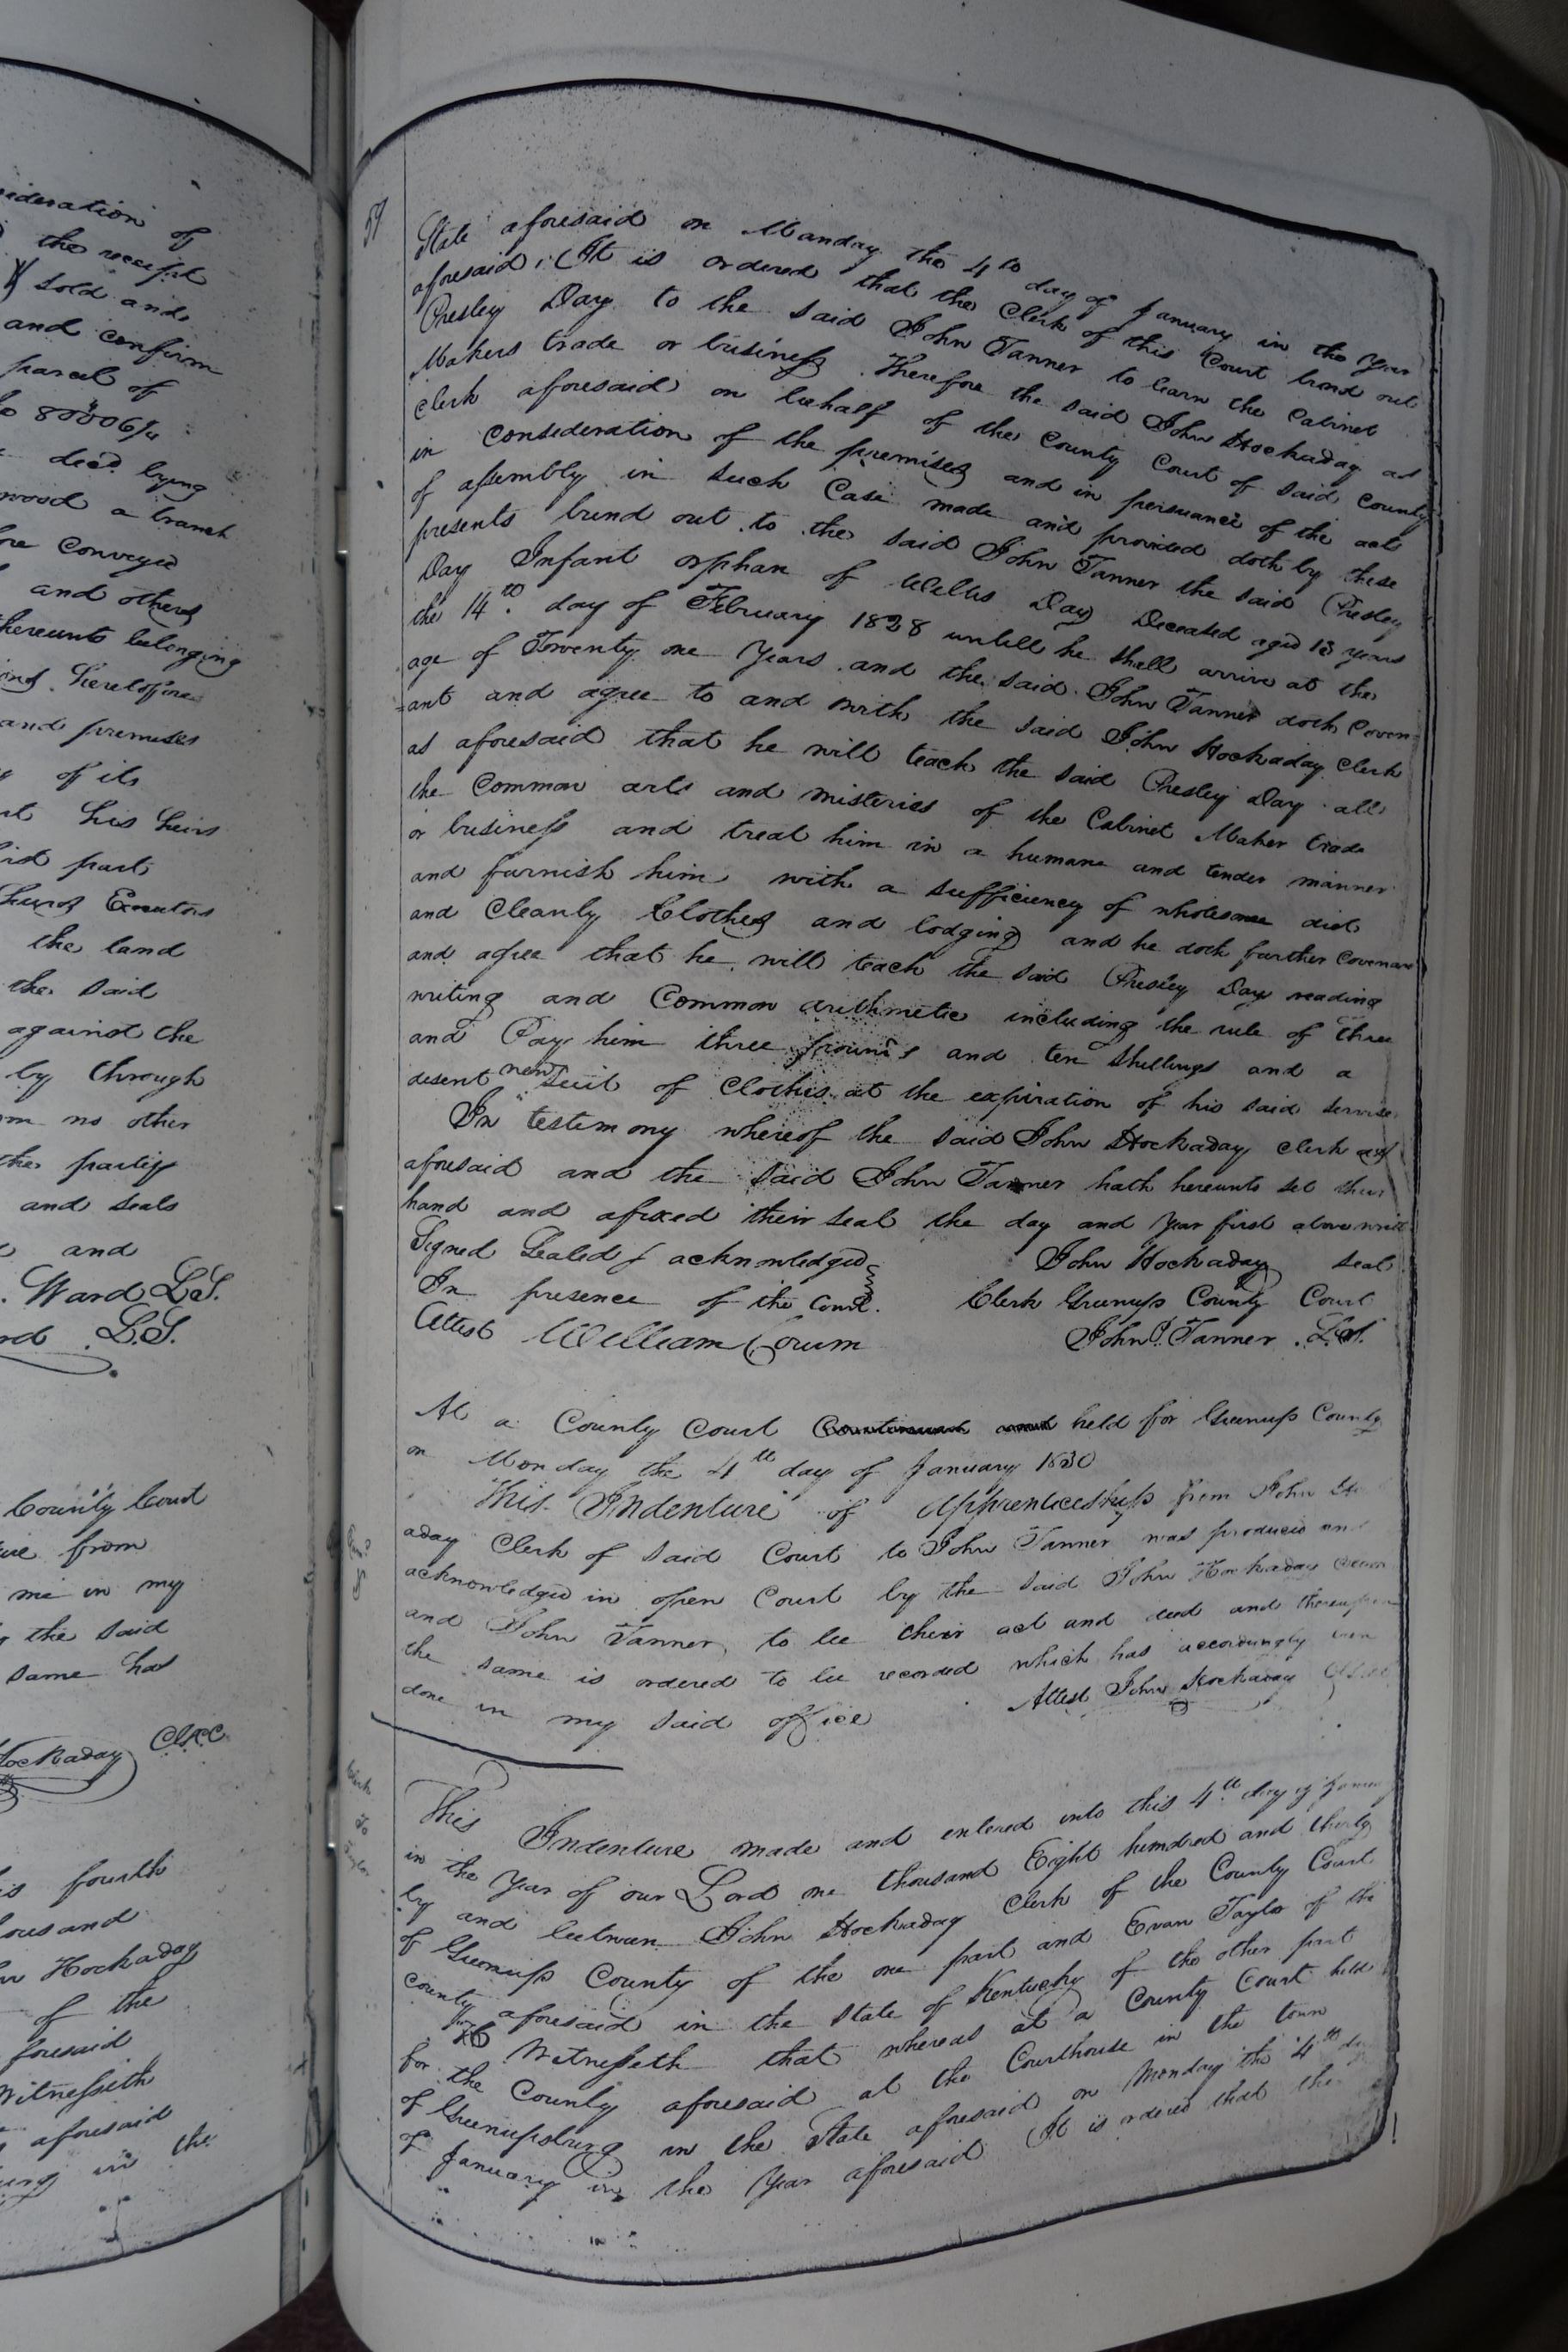 ideration of
the receipt
sold and
and confirm
parcel of
decd. lying
wood a branch
ore conveyed
and others
hereunto belonging
heretofore
and premises
of its
his heirs
part
Executors
the land
the said
against the
by through
no other
the parties
and seals
and
Ward L.S.
L.S.
County Court
from
me in my
the said
same has
Hockaday Clk C
fourth
housand
Hockaday
of the
foresaid
Witnesseth
aforesaid
in the
59
State aforesaid on Manday the 4th day of January in the year
aforesaid, (It is ordered that the Clerk of this Court bind out
Presley Day to the said John Tanner to learn the Cabinet
Makers trade or business. Therefore the said John Hockaday as
Clerk aforesaid on behalf of the County Court of said County
in consideration of the premises and in persuance of the act
of assembly in such Case made and provided doth by these
presents bind out to the said John Tanner the said Presley
Day Infant orphan of Willis Day Deceased aged 13 years
the 14th day of February 1828 untill he shall arrive at the
age of Twenty one Years and the said John Tanner doth Coven-
=ant and agree to and with the said John Hockaday Clerk
as aforesaid that he will teach the said Presley Day all
the Common arts and misteries of the Cabinet Maker trade
or business and treat him in a humane and tender manner
and furnish him with a sufficiency of wholesome diet
and Cleanly Clothes and lodging and he doth further Covenant
and agree that he will teach the said Presley Day reading
writing and Common arithmetic including the rule of three
and Pay him three pounds and ten shillings and a
desent new suit of Clothes at the expiration of his said service
In testimony whereof the said John Hockaday Clerk as
aforesaid and the said John Tanner hath hereunto set their
hand and afixed their seal the day and year first above writ
Signed Sealed & acknowledged John Hockaday seal
In presence of the Court. Clerk Greenup County Court
Attest William Corum John Tanner L.S.
At a County Court held for Greenup County
on Monday the 4th day of January 1830
This Indenture of Apprenticeship from John
aday Clerk of said Court to John Tanner was produced and
acknowledged in open Court by the said John Hockaday
and John Tanner to be their act and deed and thereupon
the same is ordered to be recorded which has accordingly been
done in my said office Attest John Hockaday
Clerk
to
Taylor
This Indenture made and entered into this 4th day of January
in the Year of our Lord one thousand Eight hundred and thirty
by and between John Hockaday Clerk of the County Court
of Greenup County of the one part and Evan Taylor of the
County aforesaid in the State of Kentucky of the other part
Witnesseth that whereas at a County Court held
for the County aforesaid at the Courthouse in the town
of Greenupsburg in the State aforesaid on Monday the 4th day
of January in the Year aforesaid It is ordered that the